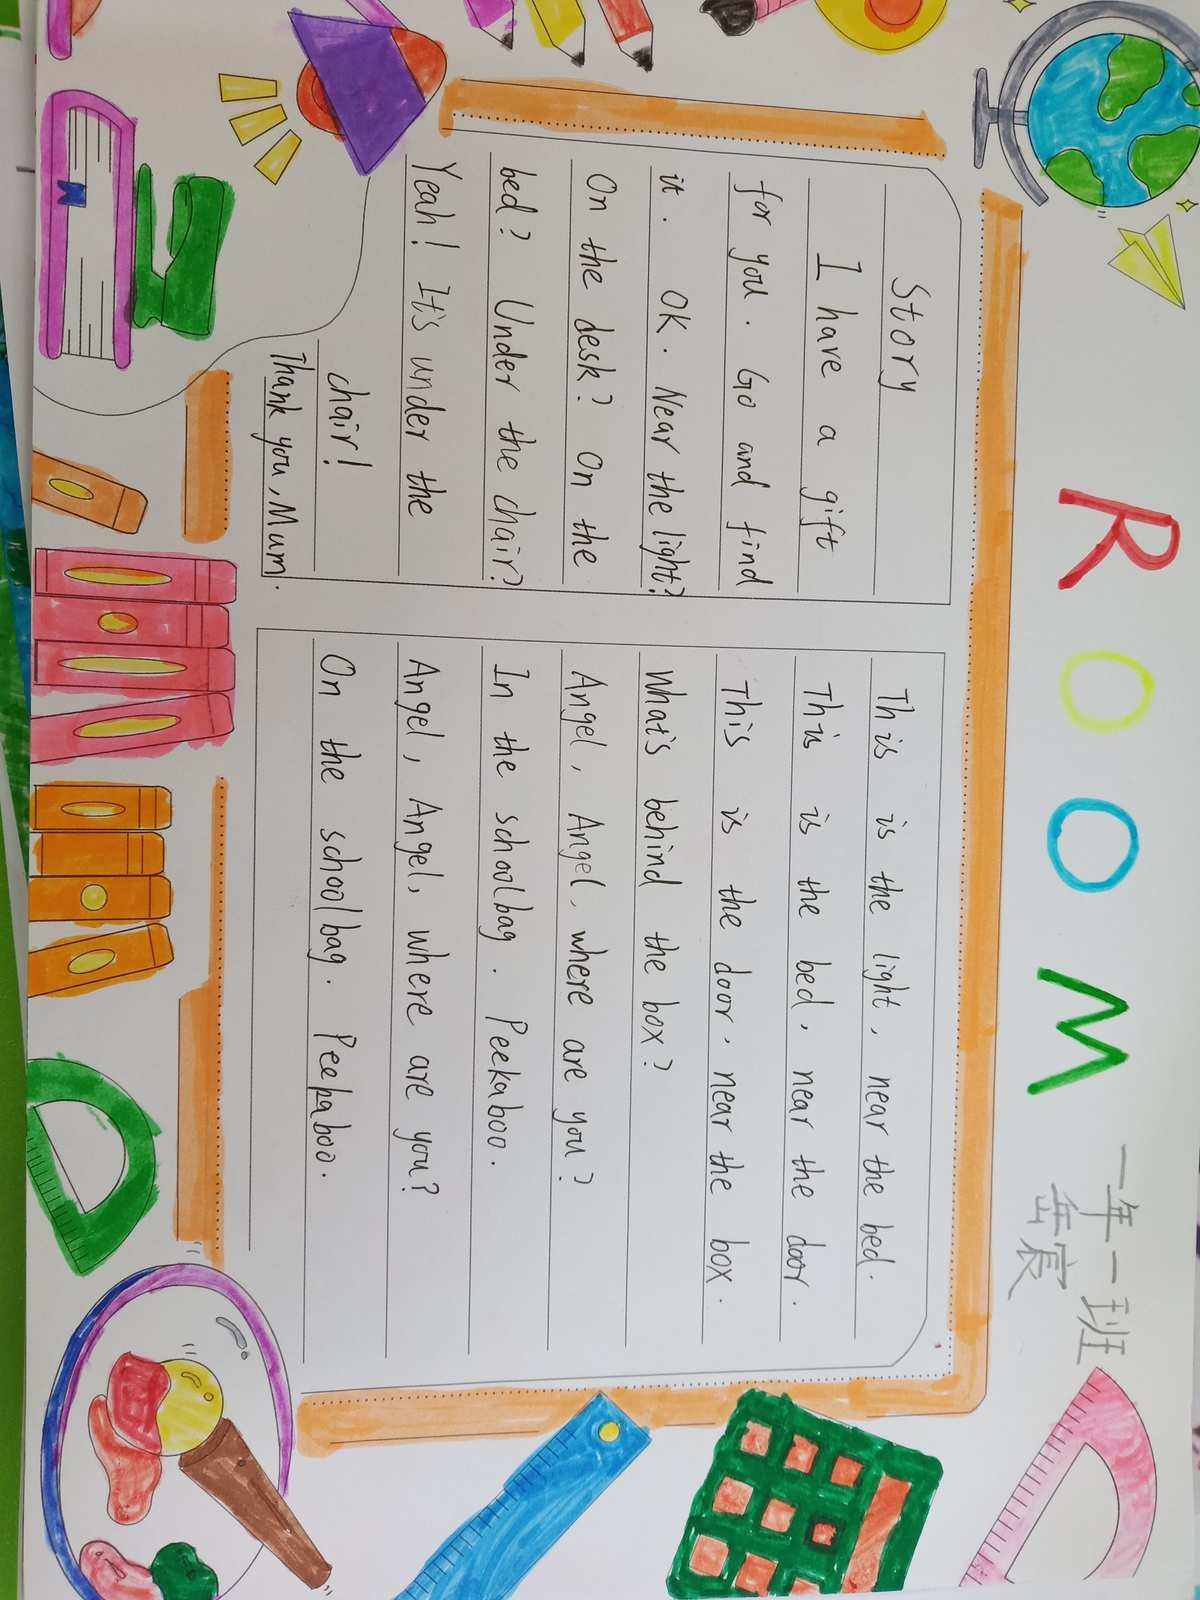 ROOM
一年一班
岳宸
Story
I have a gift
for you. Go and find
it. OK. Near the light?
On the desk? On the
bed? Under the chair?
Yeah! It's under the
chair!
Thank you, Mum!
This is the light, near the bed.
This is the bed, near the door.
This is the door, near the box.
What's behind the box?
Angel, Angel, where are you?
In the schoolbag. Peekaboo.
Angel, Angel, where are you?
On the schoolbag. Peekaboo.